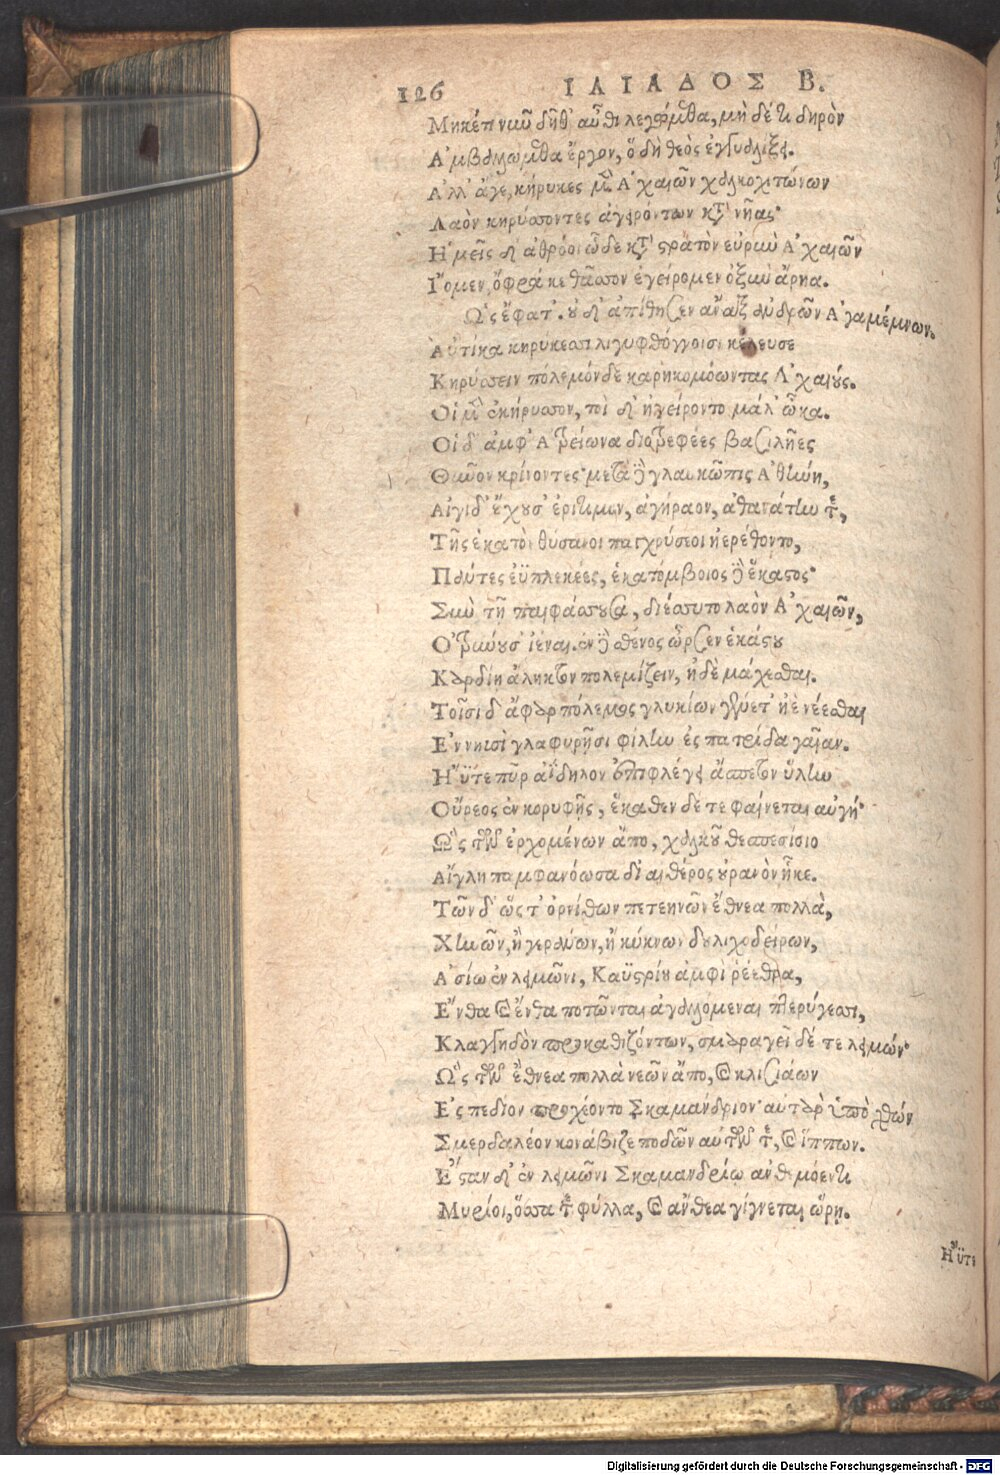 126 ΙΛΙΑΔΟΣ Β.
Μηκέτι νῦν δῆθ' αὖθι λεγώμεθα, μὴ δέ τι δηρὸν
Ἀμβαλώμεθα ἔργον, ὃ δὴ θεὸς ἐγγυαλίξει.
Ἀλλ' ἄγε, κήρυκες μὲν Ἀχαιῶν χαλκοχιτώνων
Λαὸν κηρύσσοντες ἀγειρόντων κατὰ νῆας·
Ἡμεῖς δ' ἀθρόοι ὧδε κατὰ στρατὸν εὐρὺν Ἀχαιῶν
Ἴομεν, ὄφρά κε θᾶσσον ἐγείρομεν ὀξὺν ἄρηα.
Ὣς ἔφατ'. οὐδ' ἀπίθησεν ἄναξ ἀνδρῶν Ἀγαμέμνων.
Αὐτίκα κηρύκεσσι λιγυφθόγγοισι κέλευσε
Κηρύσσειν πόλεμόνδε καρηκομόωντας Ἀχαιούς.
Οἱ μὲν ἐκήρυσσον, τοὶ δ' ἠγείροντο μάλ' ὦκα.
Οἱ δ' ἀμφ' Ἀτρείωνα διοτρεφέες βασιλῆες
Θῦνον κρίνοντες· μετὰ δὲ γλαυκῶπις Ἀθήνη,
Αἰγίδ' ἔχουσ' ἐρίτιμον, ἀγήραον, ἀθανάτην τε,
Τῆς ἑκατὸν θύσανοι παγχρύσεοι ἠερέθοντο,
Πάντες ἐϋπλεκέες, ἑκατόμβοιος δὲ ἕκαστος·
Σὺν τῇ παιφάσσουσα, διέσσυτο λαὸν Ἀχαιῶν,
Ὀτρύνουσ' ἰέναι. ἐν δὲ σθένος ὦρσεν ἑκάστου
Καρδίῃ ἄληκτον πολεμίζειν, ἠδὲ μάχεσθαι.
Τοῖσι δ' ἄφαρ πόλεμος γλυκίων γένετ' ἠὲ νέεσθαι
Ἐν νηυσὶ γλαφυρῇσι φίλην ἐς πατρίδα γαῖαν.
Ἠΰτε πῦρ ἀΐδηλον ἐπιφλέγει ἄσπετον ὕλην
Οὔρεος ἐν κορυφῇς, ἕκαθεν δέ τε φαίνεται αὐγή·
Ὣς τῶν ἐρχομένων ἄπο, χαλκοῦ θεσπεσίοιο
Αἴγλη παμφανόωσα δι' αἰθέρος οὐρανὸν ἧκε.
Τῶν δ' ὥς τ' ὀρνίθων πετεηνῶν ἔθνεα πολλὰ,
Χηνῶν, ἢ γεράνων, ἢ κύκνων δουλιχοδείρων,
Ἀσίῳ ἐν λειμῶνι, Καϋστρίου ἀμφὶ ῥέεθρα,
Ἔνθα καὶ ἔνθα ποτῶνται ἀγαλλόμεναι πτερύγεσσι,
Κλαγγηδὸν προκαθιζόντων, σμαραγεῖ δέ τε λειμών·
Ὣς τῶν ἔθνεα πολλὰ νεῶν ἄπο, καὶ κλισιάων
Ἐς πεδίον προχέοντο Σκαμάνδριον· αὐτὰρ ὑπὸ χθὼν
Σμερδαλέον κονάβιζε ποδῶν αὐτῶν τε, καὶ ἵππων.
Ἔσταν δ' ἐν λειμῶνι Σκαμανδρίῳ ἀνθεμόεντι
Μυρίοι, ὅσσα τε φύλλα, καὶ ἄνθεα γίγνεται ὥρῃ.
Ἠΰτε
Digitalisierung gefördert durch die Deutsche Forschungsgemeinschaft - DFG